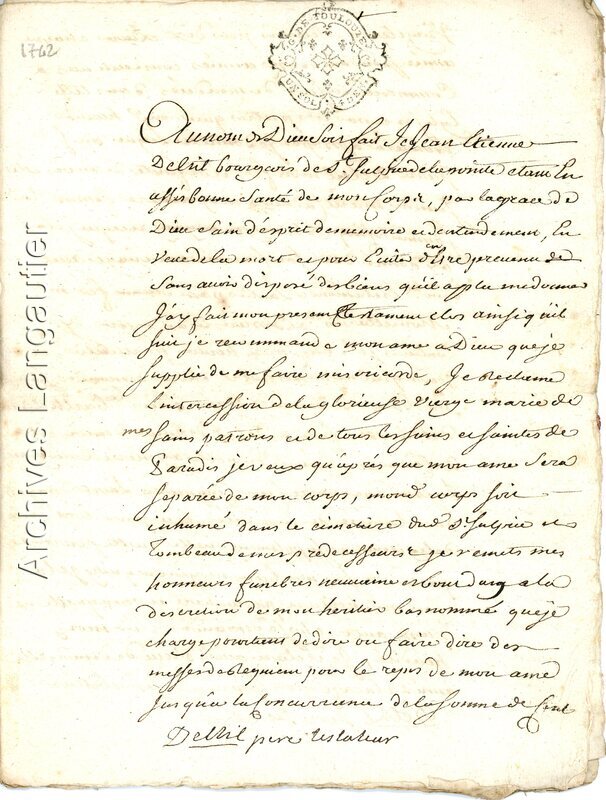 1762
G. DE TOULOUZE
UN SOL
Au nom de Dieu Soit fait Je Jean Etienne
Delhil bourgeois de St. Sulpice de la pointe etant En
assés bonne Santé de mon Corps, par la grace de
Dieu Sain d'esprit de memoire et d'entendement, En
veüe de la mort et pour Eviter d'en Etre prevenu de
Sans avoir disposé des biens qu'il a plu me donner
J'ay fait mon present testament clos ainsi qu'il
suit je recommande mon ame a Dieu que je
supplie de me faire misericorde, Je reclame
l'intercession de la glorieuse vierge marie de
mes Saints patrons et de tous les saints et saintes de
Paradis je veux qu'aprés que mon ame Sera
separée de mon corps, mond. corps soit
inhumé dans le cimetaire dud. St. Sulpice et
Tombeau de mes predecesseurs je remets mes
honneurs funebres neuvaine et bout d'an a la
discretion de mon heritier bas nommé que je
charge pourtant de dire ou faire dire des
messes de Requiem pour le repos de mon ame
Jusqu'a la Concurrance de la Somme de Cent
Delhil pere testateur
Archives Langautier